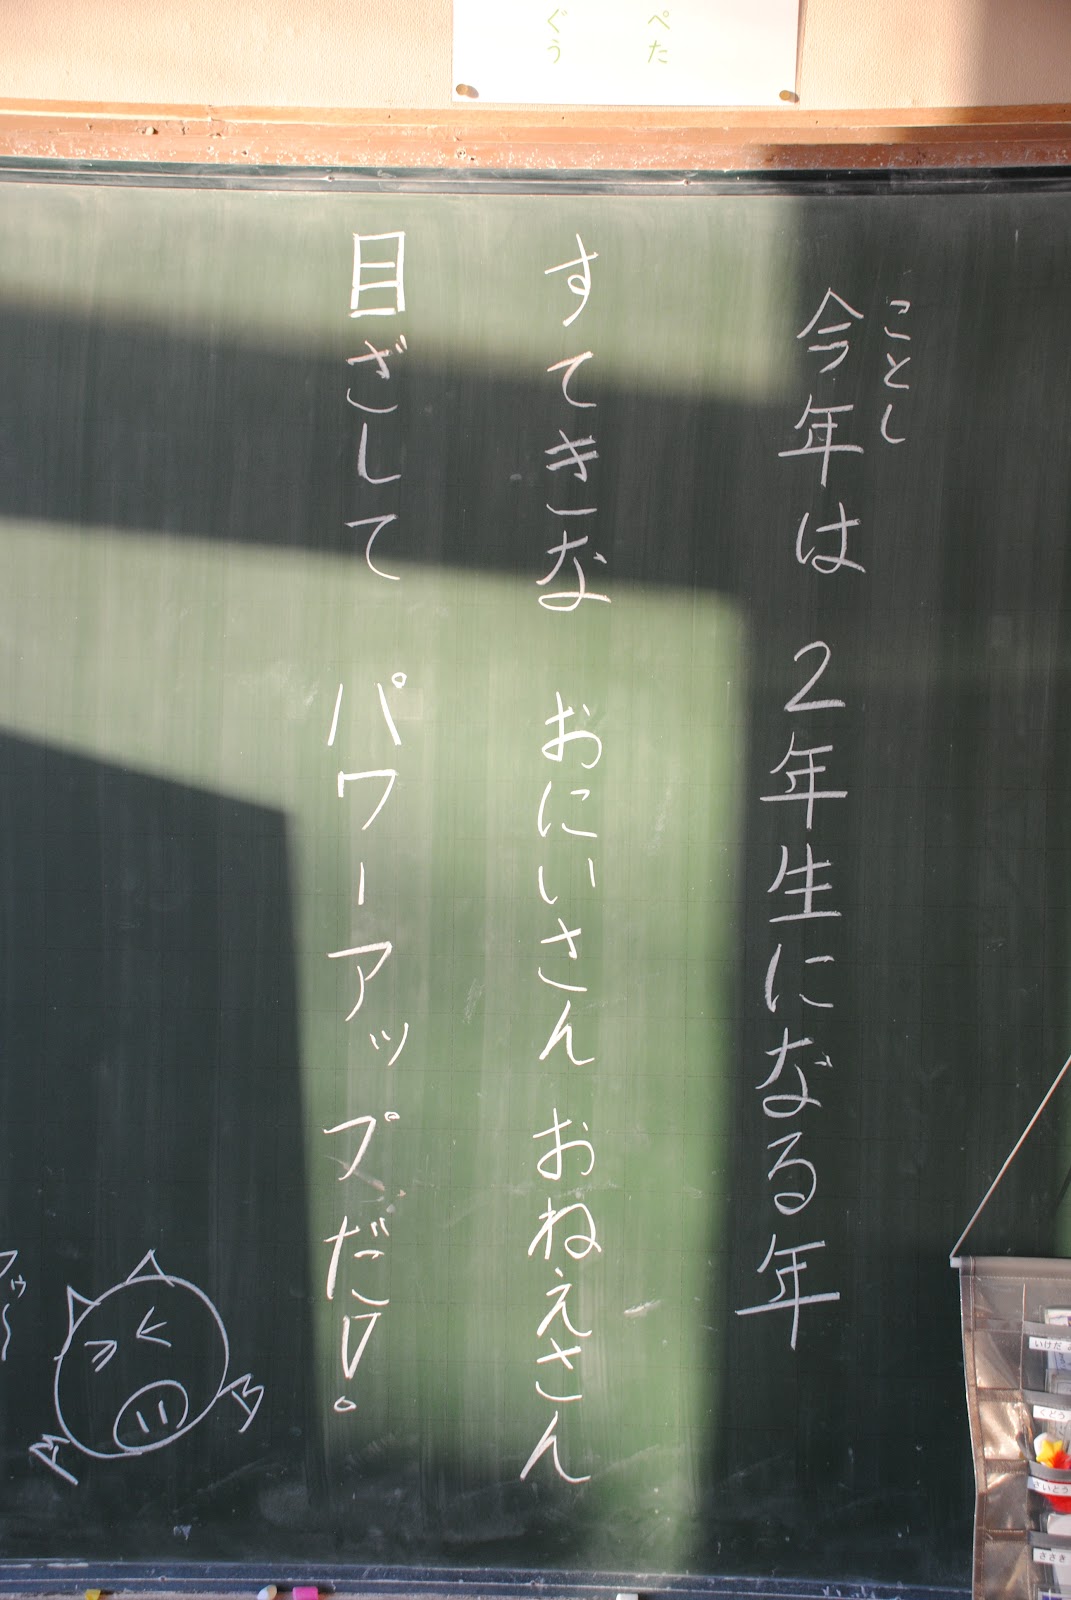 ぺた
ぐう
ことし
今年は 2年生になる年
すてきな おにいさん おねえさん
目ざして パワーアップだ!。
いけだ
くどう
さいとう
ささき